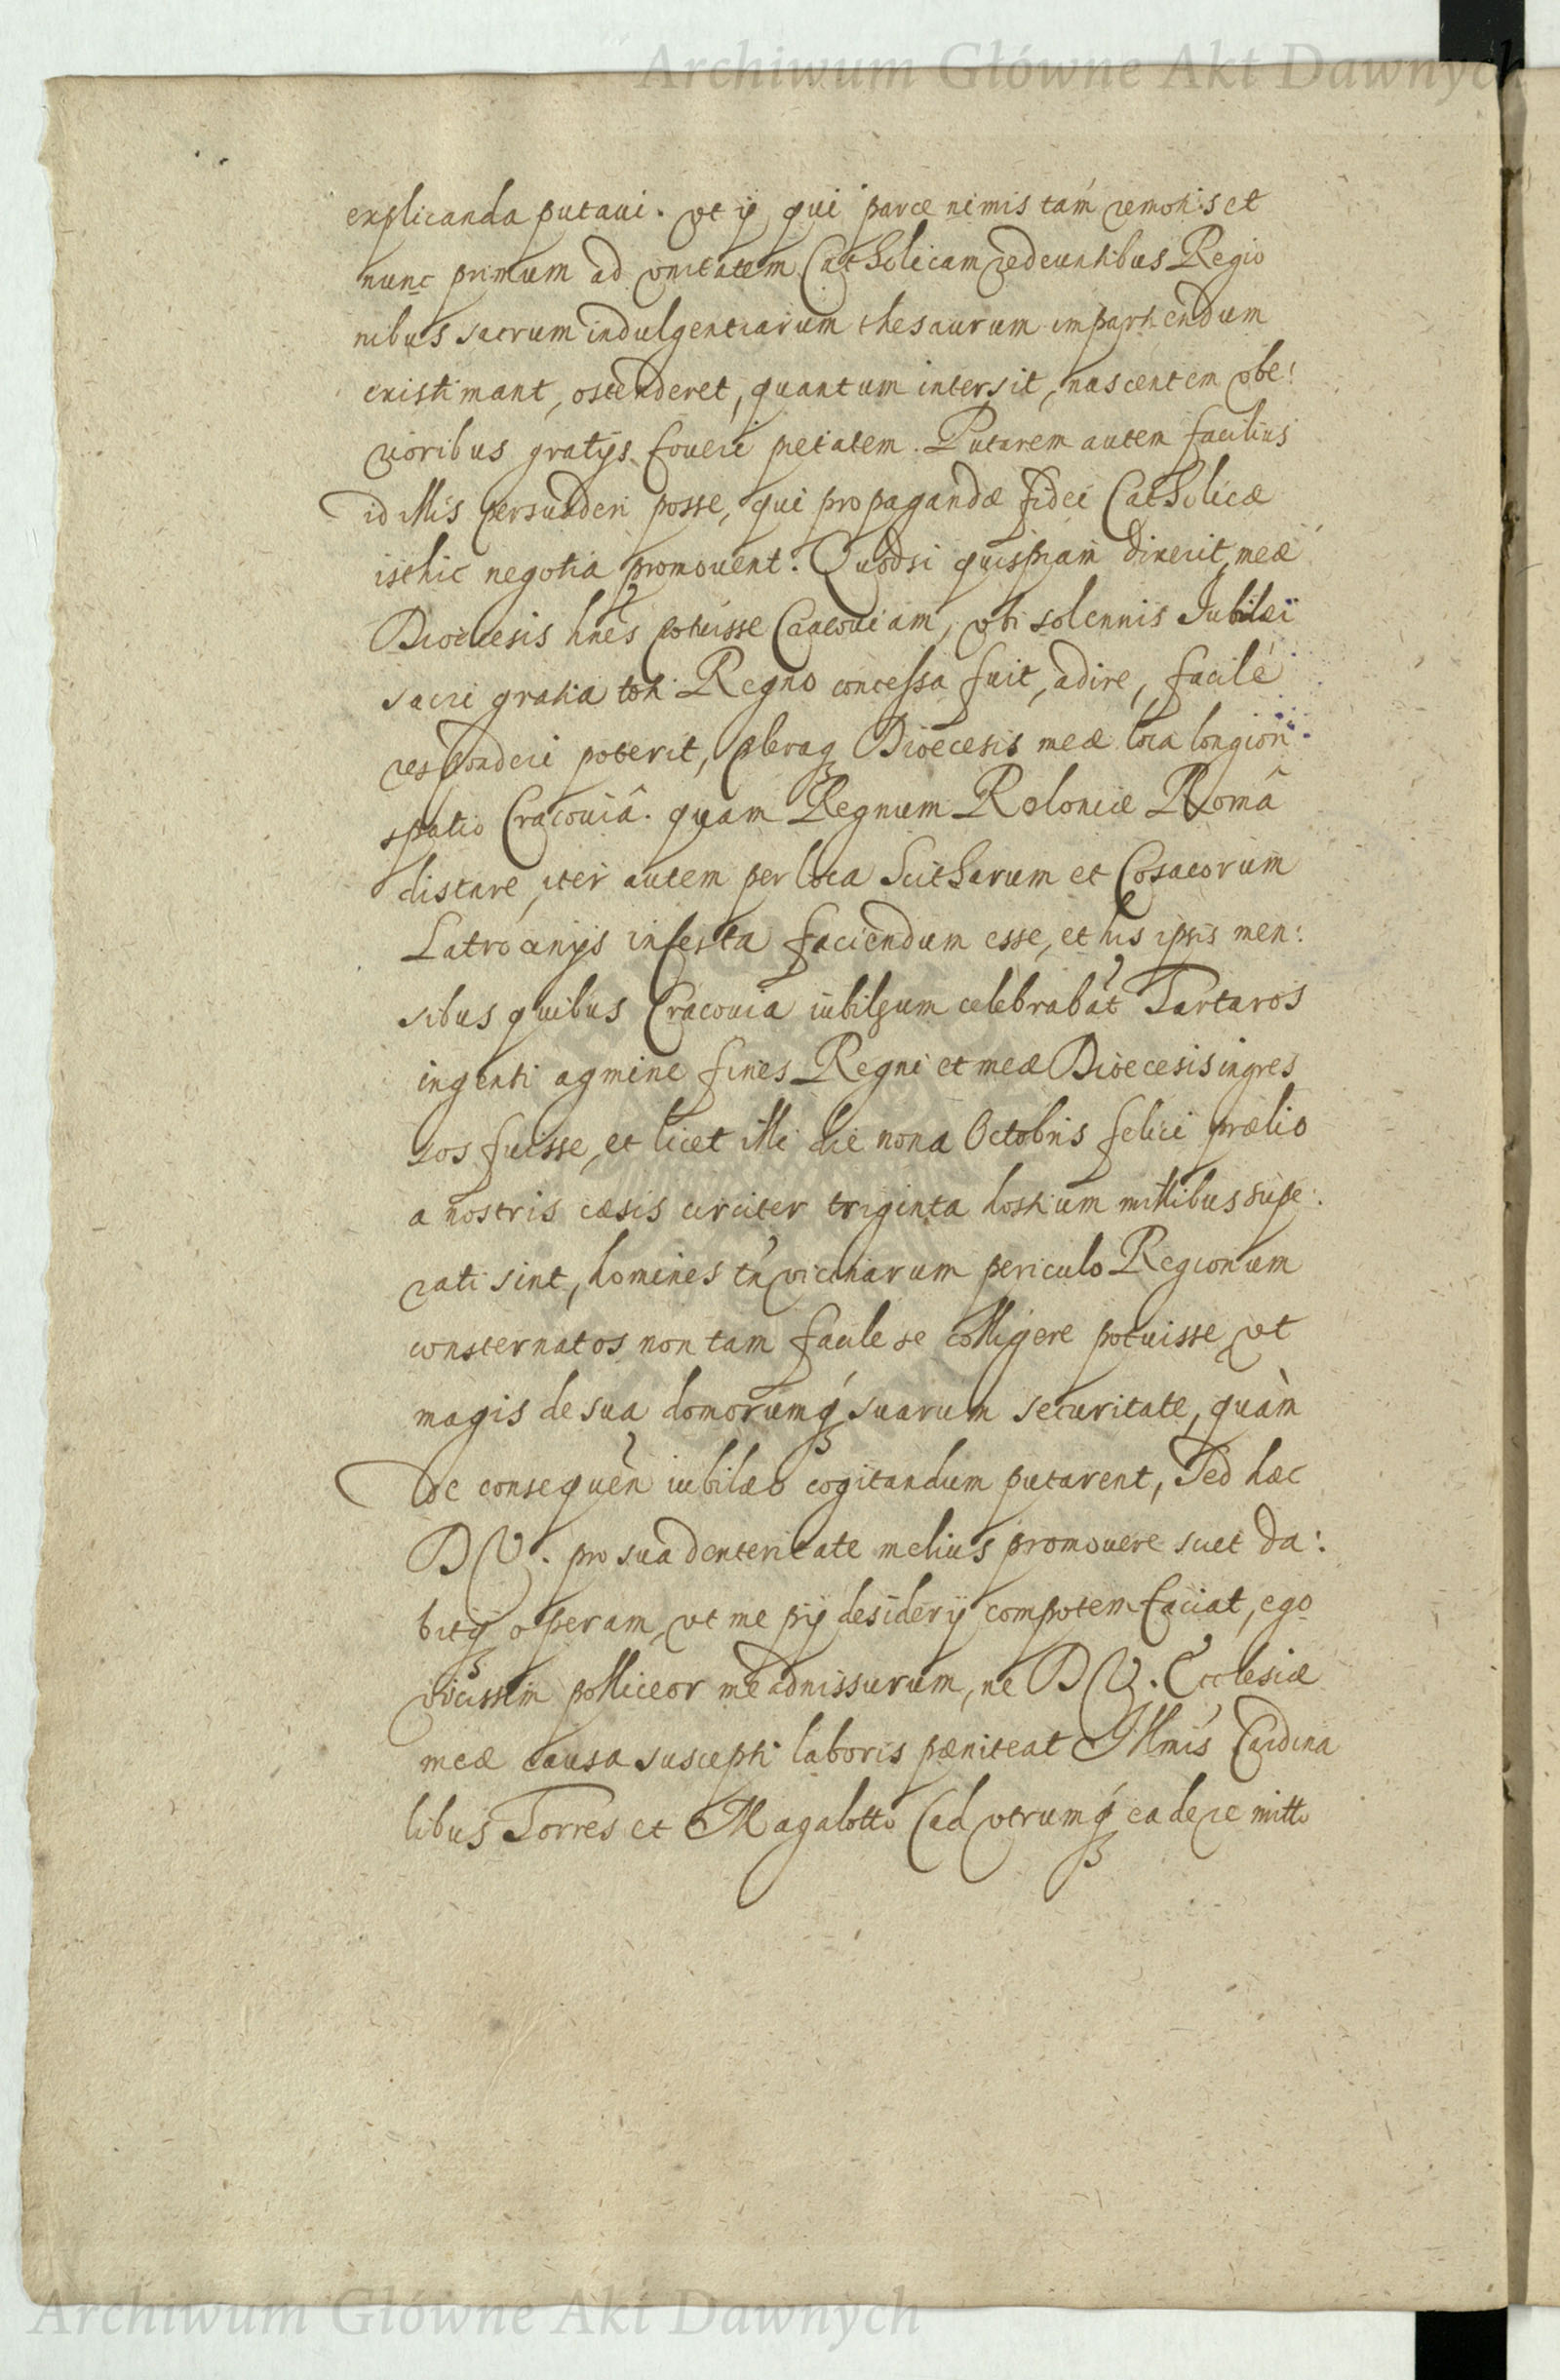 Archiwum Główne Akt Dawnych
explicanda putaui. vt ij qui parce nimis tam remotis et
nunc primum ad vnitatem Catholicam redeuntibus Regio
nibus sacrum indulgentiarum thesaurum impartiendum
existimant, ostenderet, quantum intersit, nascentem vbe:
rioribus gratijs foueri pietatem. Putarem autem facilius
id illis persuaderi posse, qui propagandæ fidei Catholicæ
isthic negotia promouent. Quodsi quispiam dixerit, meæ
Dioecesis hnes potuisse Cracouiam, vbi solennis Iubilæi
sacri gratia toti Regno concessa fuit, adire, facilè
responderi poterit, pleraq Dioecesis meæ loca longiori
spatio Cracouiâ. quam Regnum Poloniæ Româ
distare, iter autem per loca Scitharum et Cosacorum
Latrocinijs infesta faciendum esse, et his ipsis men:
sibus quibus Cracouia iubilęum celebrabat Tartaros
ingenti agmine fines Regni et meæ Dioecesis ingres
sos fuisse, et licet illi die nona Octobris felici prælio
a nostris cæsis circiter triginta hostium millibus supe:
rati sint, homines tn vicinarum periculo Regionum
consternatos non tam facile se colligere potuisse, vt
magis de sua domorumq suarum securitate, quàm
de consequen iubilæo cogitandum putarent, Sed hæc
D V. pro sua dexteritate melius promouere suet da:
bitq operam, vt me pij desiderij compotem faciat, ego
vicissim polliceor me adnissurum, ne D V. Ecclesiæ
meæ causa suscepti laboris pæniteat Illmis Cardina
libus Torres et Magalotto (ad vtrumq ea de re mitto
Archiwum Główne Akt Dawnych